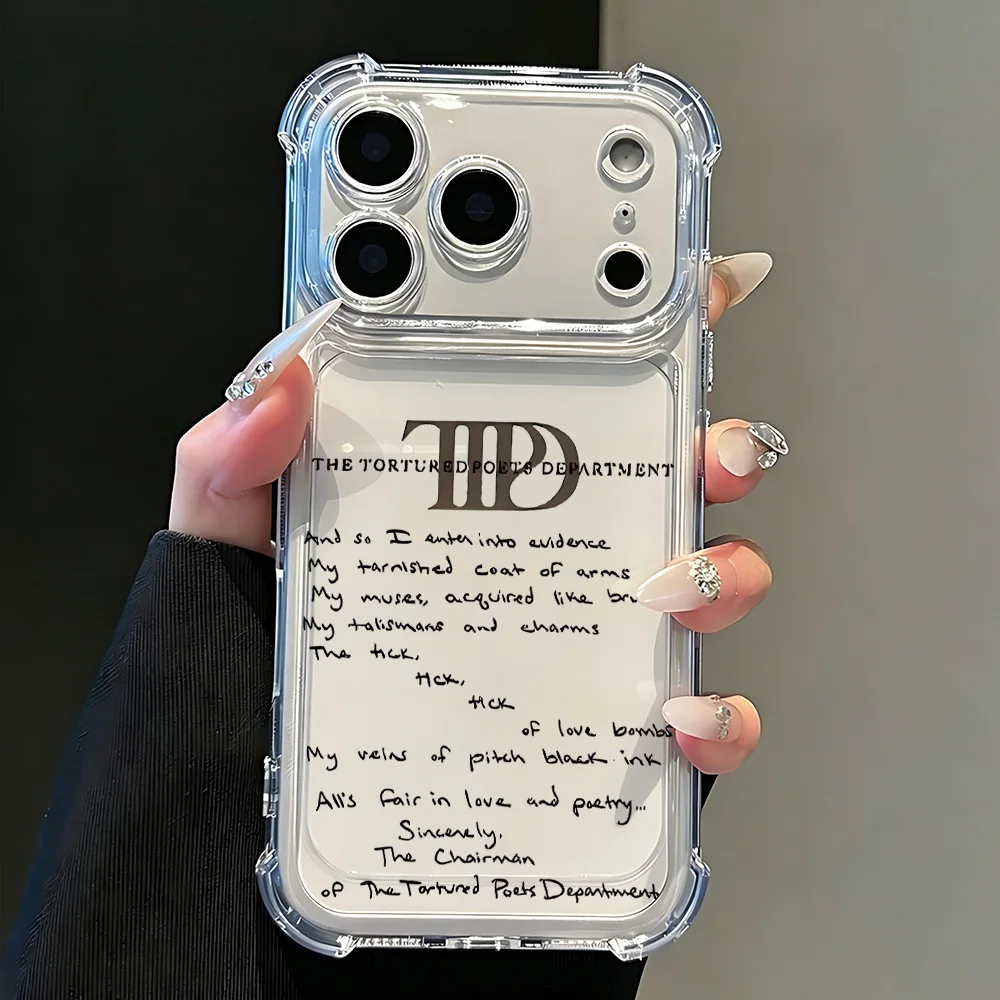 TTPD
THE TORTURED POETS DEPARTMENT
And so I enter into evidence
My tarnished coat of arms
My muses, acquired like
My talismans and charms
The tick,
tick,
tick
of love bombs
My veins of pitch black ink
All's fair in love and poetry...
Sincerely,
The Chairman
of The Tortured Poets Department